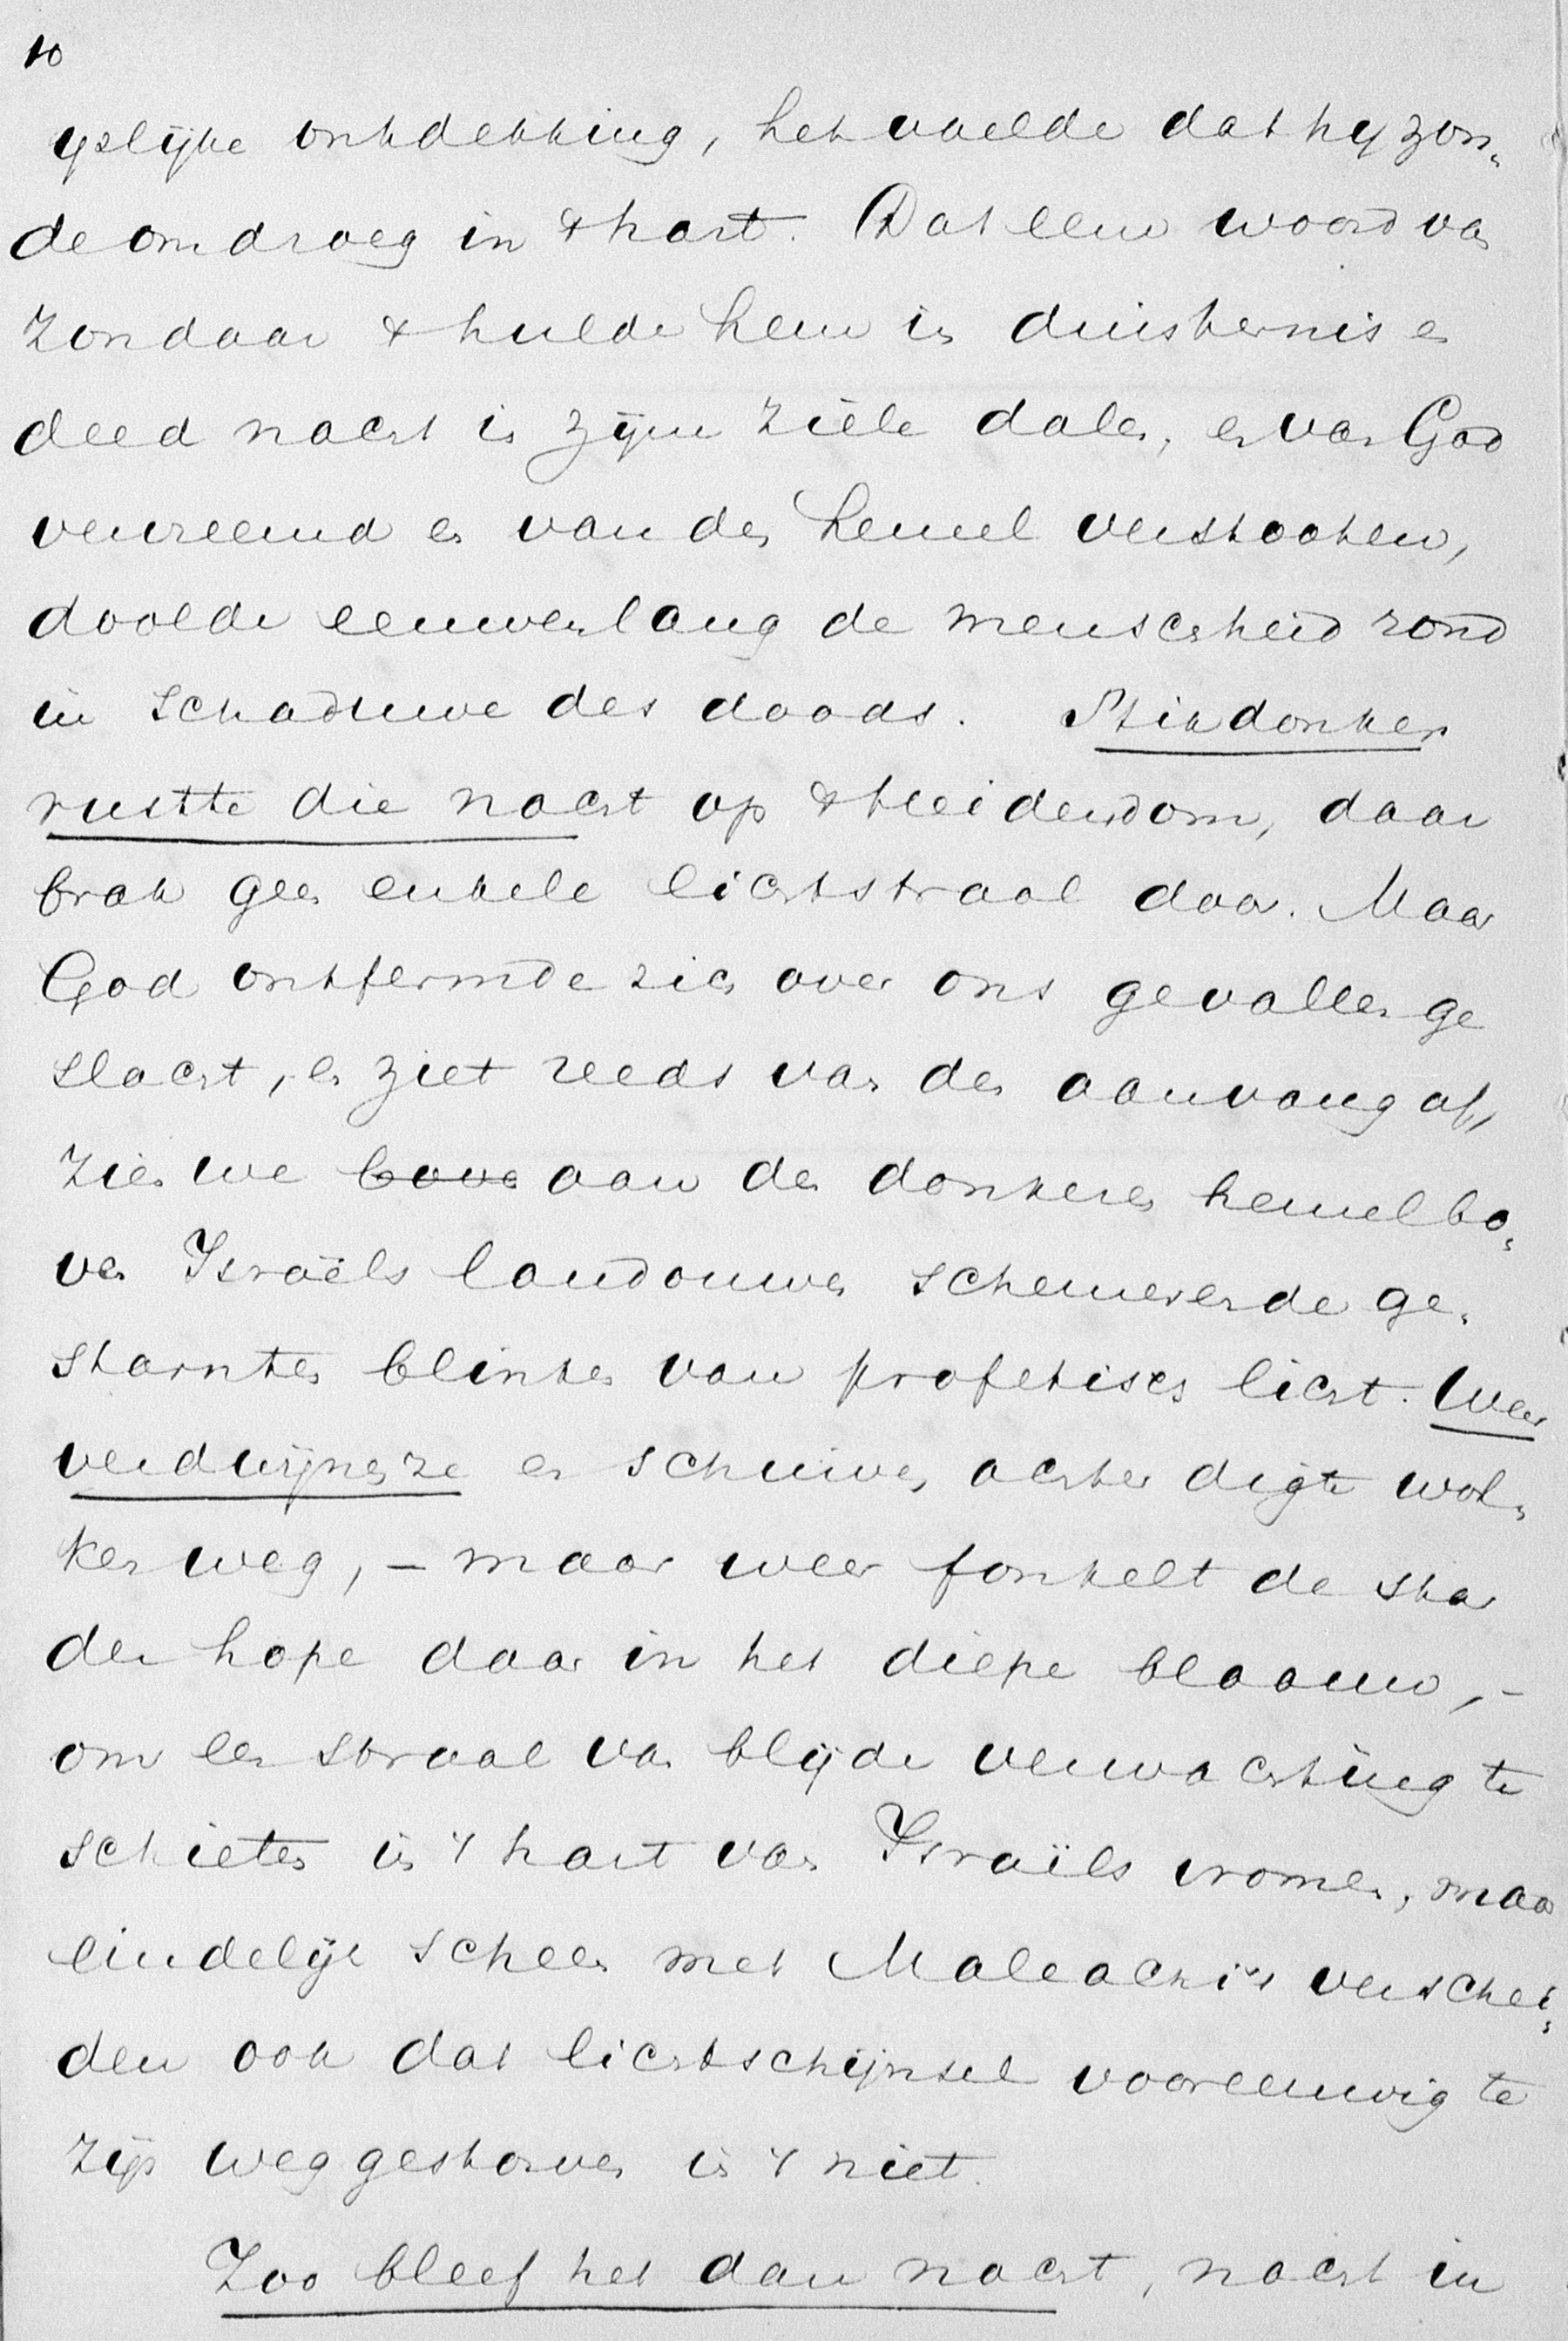 10
yslijke ontdekking, het voelde dat hy zon„
de omdroeg in 't hart. Dat eene woord van
zondaar 't hulde hem in duisternis en
deed nacht in zijne ziele dalen, en van God
vervreemd en van den hemel verstooten,
doolde eeuwenlang de menschheid rond
in schaduwe des doods. Stikdonker
rustte die nacht op 't heidendom, daar
brak geen enkele lichtstraal door. Maar
God ontfermde zich over ons gevallen ge
slacht, en ziet reeds van den aanvang af,
zien we bove aan den donkeren hemel bo„
ven Israëls landouwen schemerende ge„
starnten blinken van profetisch licht. Weer
verdwijnen ze en schuiven achter digte wol„
ken weg, – maar weer fonkelt de star
der hope daar in het diepe blaauw, –
om een straal van blijde verwachting te
schieten in 't hart van Israëls vromen, maar
eindelijk scheen met Maleachi's verschei„
den ook dat lichtschijnsel voor eeuwig te
zijn weggestorven in 't niet.
Zoo bleef het dan nacht, nacht in